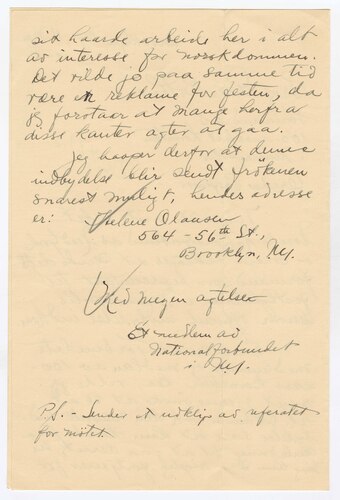 sitt haarde arbeide her i alt
av interesse for norskdommen.
Det vilde jo paa samme tid
være en reklame for festen, da
jeg forstaar at mange herfra
disse kanter agter at gaa.
Jeg haaper derfor at denne
indbydelse blir sendt frökenen
snarest muligt, hendes adresse
er: Helene Olausen
564 - 56th St.,
Brooklyn, N.Y.
Med megen agtelse
Et medlem av
Nationalforbundet
i N.Y.
P.S. - Sender et udklip av referatet
for mötet.